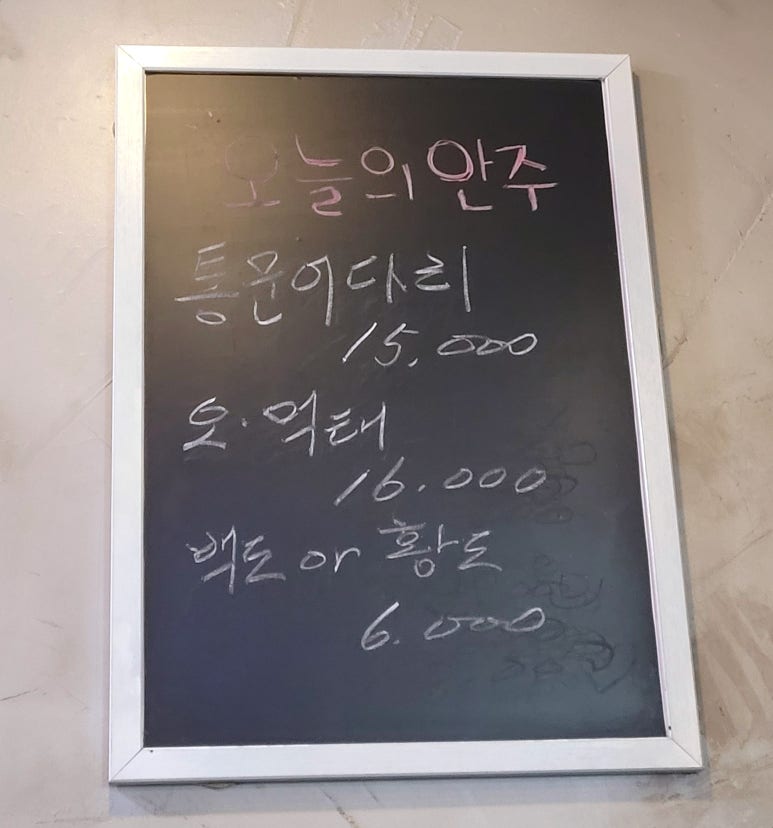 오늘의 안주
통문어다리
15.000
오·먹태
16.000
백도 or 황도
6.000